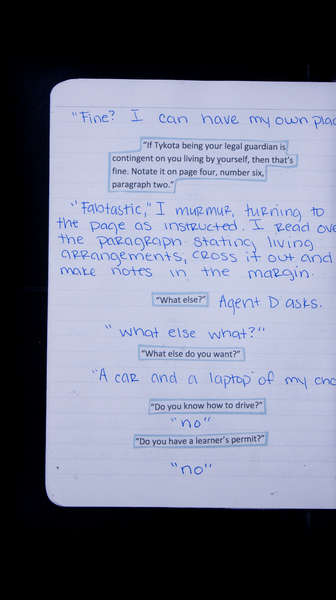 "Fine? I can have my own plac
"If Tykota being your legal guardian is
contingent on you living by yourself, then that's
fine. Notate it on page four, number six,
paragraph two."
"Fabtastic," I murmur, turning to
the page as instructed. I read ove
the paragraph stating living
arrangements, cross it out and
make notes in the margin.
"What else?" Agent D asks.
"what else what?"
"What else do you want?"
"A car and a laptop of my cho
"Do you know how to drive?"
"no"
"Do you have a learner's permit?"
"no"